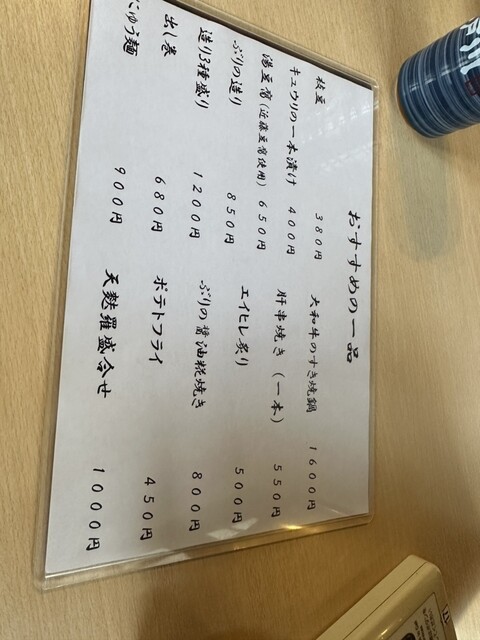 おすすめの一品
枝豆 380円
キュウリの一本漬け 400円
湯豆腐(近藤豆腐使用) 650円
ぶりの造り 850円
造り3種盛り 1200円
出し巻 680円
にゅう麺 900円
大和牛のすき焼鍋 1600円
肝串焼き (一本) 550円
エイヒレ炙り 500円
ぶりの醤油糀焼き 800円
ポテトフライ 450円
天麩羅盛合せ 1000円